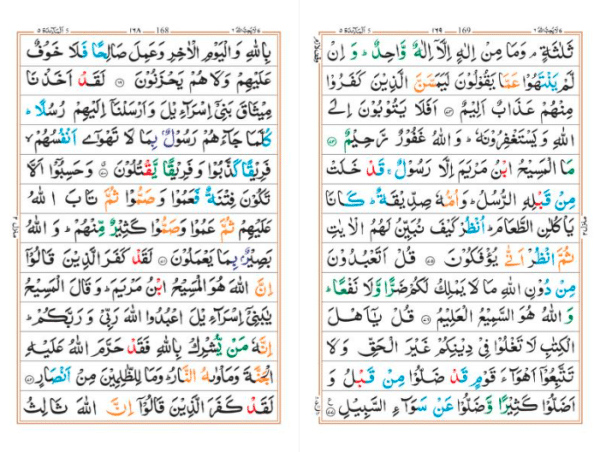 المآئدة ٥ ١٦٨ 168 لا يحب الله ٦
بِاللهِ وَالْيَوْمِ الْاٰخِرِ وَعَمِلَ صَالِحًا فَلَا خَوْفٌ
عَلَيْهِمْ وَلَا هُمْ يَحْزَنُوْنَ ۝٦٩ لَقَدْ اَخَذْنَا
مِيْثَاقَ بَنِيْٓ اِسْرَآءِيْلَ وَاَرْسَلْنَآ اِلَيْهِمْ رُسُلًا ؕ
كُلَّمَا جَآءَهُمْ رَسُوْلٌۢ بِمَا لَا تَهْوٰٓى اَنْفُسُهُمْ ۙ
فَرِيْقًا كَذَّبُوْا وَفَرِيْقًا يَّقْتُلُوْنَ ۝٧٠ وَحَسِبُوْٓا اَلَّا
تَكُوْنَ فِتْنَةٌ فَعَمُوْا وَصَمُّوْا ثُمَّ تَابَ اللهُ
عَلَيْهِمْ ثُمَّ عَمُوْا وَصَمُّوْا كَثِيْرٌ مِّنْهُمْ ؕ وَاللهُ
بَصِيْرٌۢ بِمَا يَعْمَلُوْنَ ۝٧١ لَقَدْ كَفَرَ الَّذِيْنَ قَالُوْٓا
اِنَّ اللهَ هُوَ الْمَسِيْحُ ابْنُ مَرْيَمَ ؕ وَقَالَ الْمَسِيْحُ
يٰبَنِيْٓ اِسْرَآءِيْلَ اعْبُدُوا اللهَ رَبِّيْ وَرَبَّكُمْ ؕ
اِنَّهٗ مَنْ يُّشْرِكْ بِاللهِ فَقَدْ حَرَّمَ اللهُ عَلَيْهِ
الْجَنَّةَ وَمَاْوٰىهُ النَّارُ ؕ وَمَا لِلظّٰلِمِيْنَ مِنْ اَنْصَارٍ ۝٧٢
لَقَدْ كَفَرَ الَّذِيْنَ قَالُوْٓا اِنَّ اللهَ ثَالِثُ
المآئدة ٥ ١٦٩ 169 لا يحب الله ٦
ثَلٰثَةٍ ۘ وَمَا مِنْ اِلٰهٍ اِلَّآ اِلٰهٌ وَّاحِدٌ ؕ وَاِنْ
لَّمْ يَنْتَهُوْا عَمَّا يَقُوْلُوْنَ لَيَمَسَّنَّ الَّذِيْنَ كَفَرُوْا
مِنْهُمْ عَذَابٌ اَلِيْمٌ ۝٧٣ اَفَلَا يَتُوْبُوْنَ اِلَى
اللهِ وَيَسْتَغْفِرُوْنَهٗ ؕ وَاللهُ غَفُوْرٌ رَّحِيْمٌ ۝٧٤
مَا الْمَسِيْحُ ابْنُ مَرْيَمَ اِلَّا رَسُوْلٌ ۚ قَدْ خَلَتْ
مِنْ قَبْلِهِ الرُّسُلُ ؕ وَاُمُّهٗ صِدِّيْقَةٌ ؕ كَانَا
يَاْكُلٰنِ الطَّعَامَ ؕ اُنْظُرْ كَيْفَ نُبَيِّنُ لَهُمُ الْاٰيٰتِ
ثُمَّ انْظُرْ اَنّٰى يُؤْفَكُوْنَ ۝٧٥ قُلْ اَتَعْبُدُوْنَ
مِنْ دُوْنِ اللهِ مَا لَا يَمْلِكُ لَكُمْ ضَرًّا وَّلَا نَفْعًا ؕ
وَاللهُ هُوَ السَّمِيْعُ الْعَلِيْمُ ۝٧٦ قُلْ يٰٓاَهْلَ
الْكِتٰبِ لَا تَغْلُوْا فِيْ دِيْنِكُمْ غَيْرَ الْحَقِّ وَلَا
تَتَّبِعُوْٓا اَهْوَآءَ قَوْمٍ قَدْ ضَلُّوْا مِنْ قَبْلُ وَ
اَضَلُّوْا كَثِيْرًا وَّضَلُّوْا عَنْ سَوَآءِ السَّبِيْلِ ۝٧٧